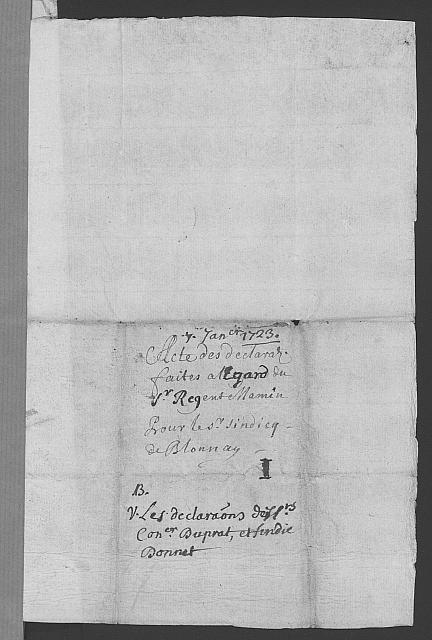 7. Jan.er 1723.
Acte des declarat.
faites a l'Egard du
Sr Regent Mamin
Pour le sr. sindicq
de Blonnay
I
B.
V. Les declaraons de Srs
Con.er Duprat, et sindic
Bonnet